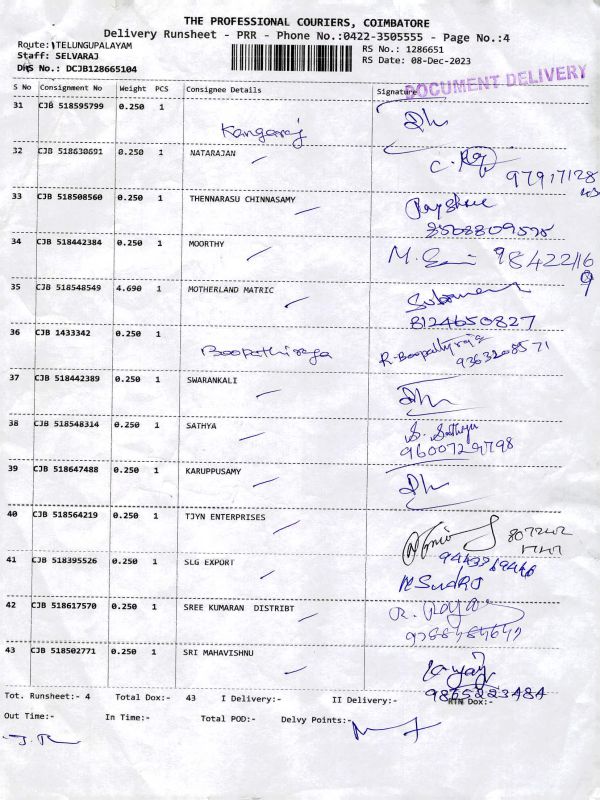 THE PROFESSIONAL COURIERS, COIMBATORE
Delivery Runsheet - PRR - Phone No.:0422-3505555 - Page No.:4
Route: TELUNGUPALAYAM
RS No.: 1286651
Staff: SELVARAJ
RS Date: 08-Dec-2023
DRS No.: DCJB128665104
DOCUMENT DELIVERY
S No Consignment No Weight PCS Consignee Details Signature
31 CJB 518595799 0.250 1 Kangaraj
32 CJB 518630691 0.250 1 NATARAJAN
33 CJB 518508560 0.250 1 THENNARASU CHINNASAMY
34 CJB 518442384 0.250 1 MOORTHY
35 CJB 518548549 4.690 1 MOTHERLAND MATRIC
8124650827
36 CJB 1433342 0.250 1 Boopathiraja R-Boopathyraja
9363208571
37 CJB 518442389 0.250 1 SWARANKALI
38 CJB 518548314 0.250 1 SATHYA S. Sathya
9600729798
39 CJB 518647488 0.250 1 KARUPPUSAMY
40 CJB 518564219 0.250 1 TJYN ENTERPRISES
41 CJB 518395526 0.250 1 SLG EXPORT
42 CJB 518617570 0.250 1 SREE KUMARAN DISTRIBT
43 CJB 518502771 0.250 1 SRI MAHAVISHNU
Tot. Runsheet:- 4 Total Dox:- 43 I Delivery:- II Delivery:- RTN Dox:-
Out Time:- In Time:- Total POD:- Delvy Points:-